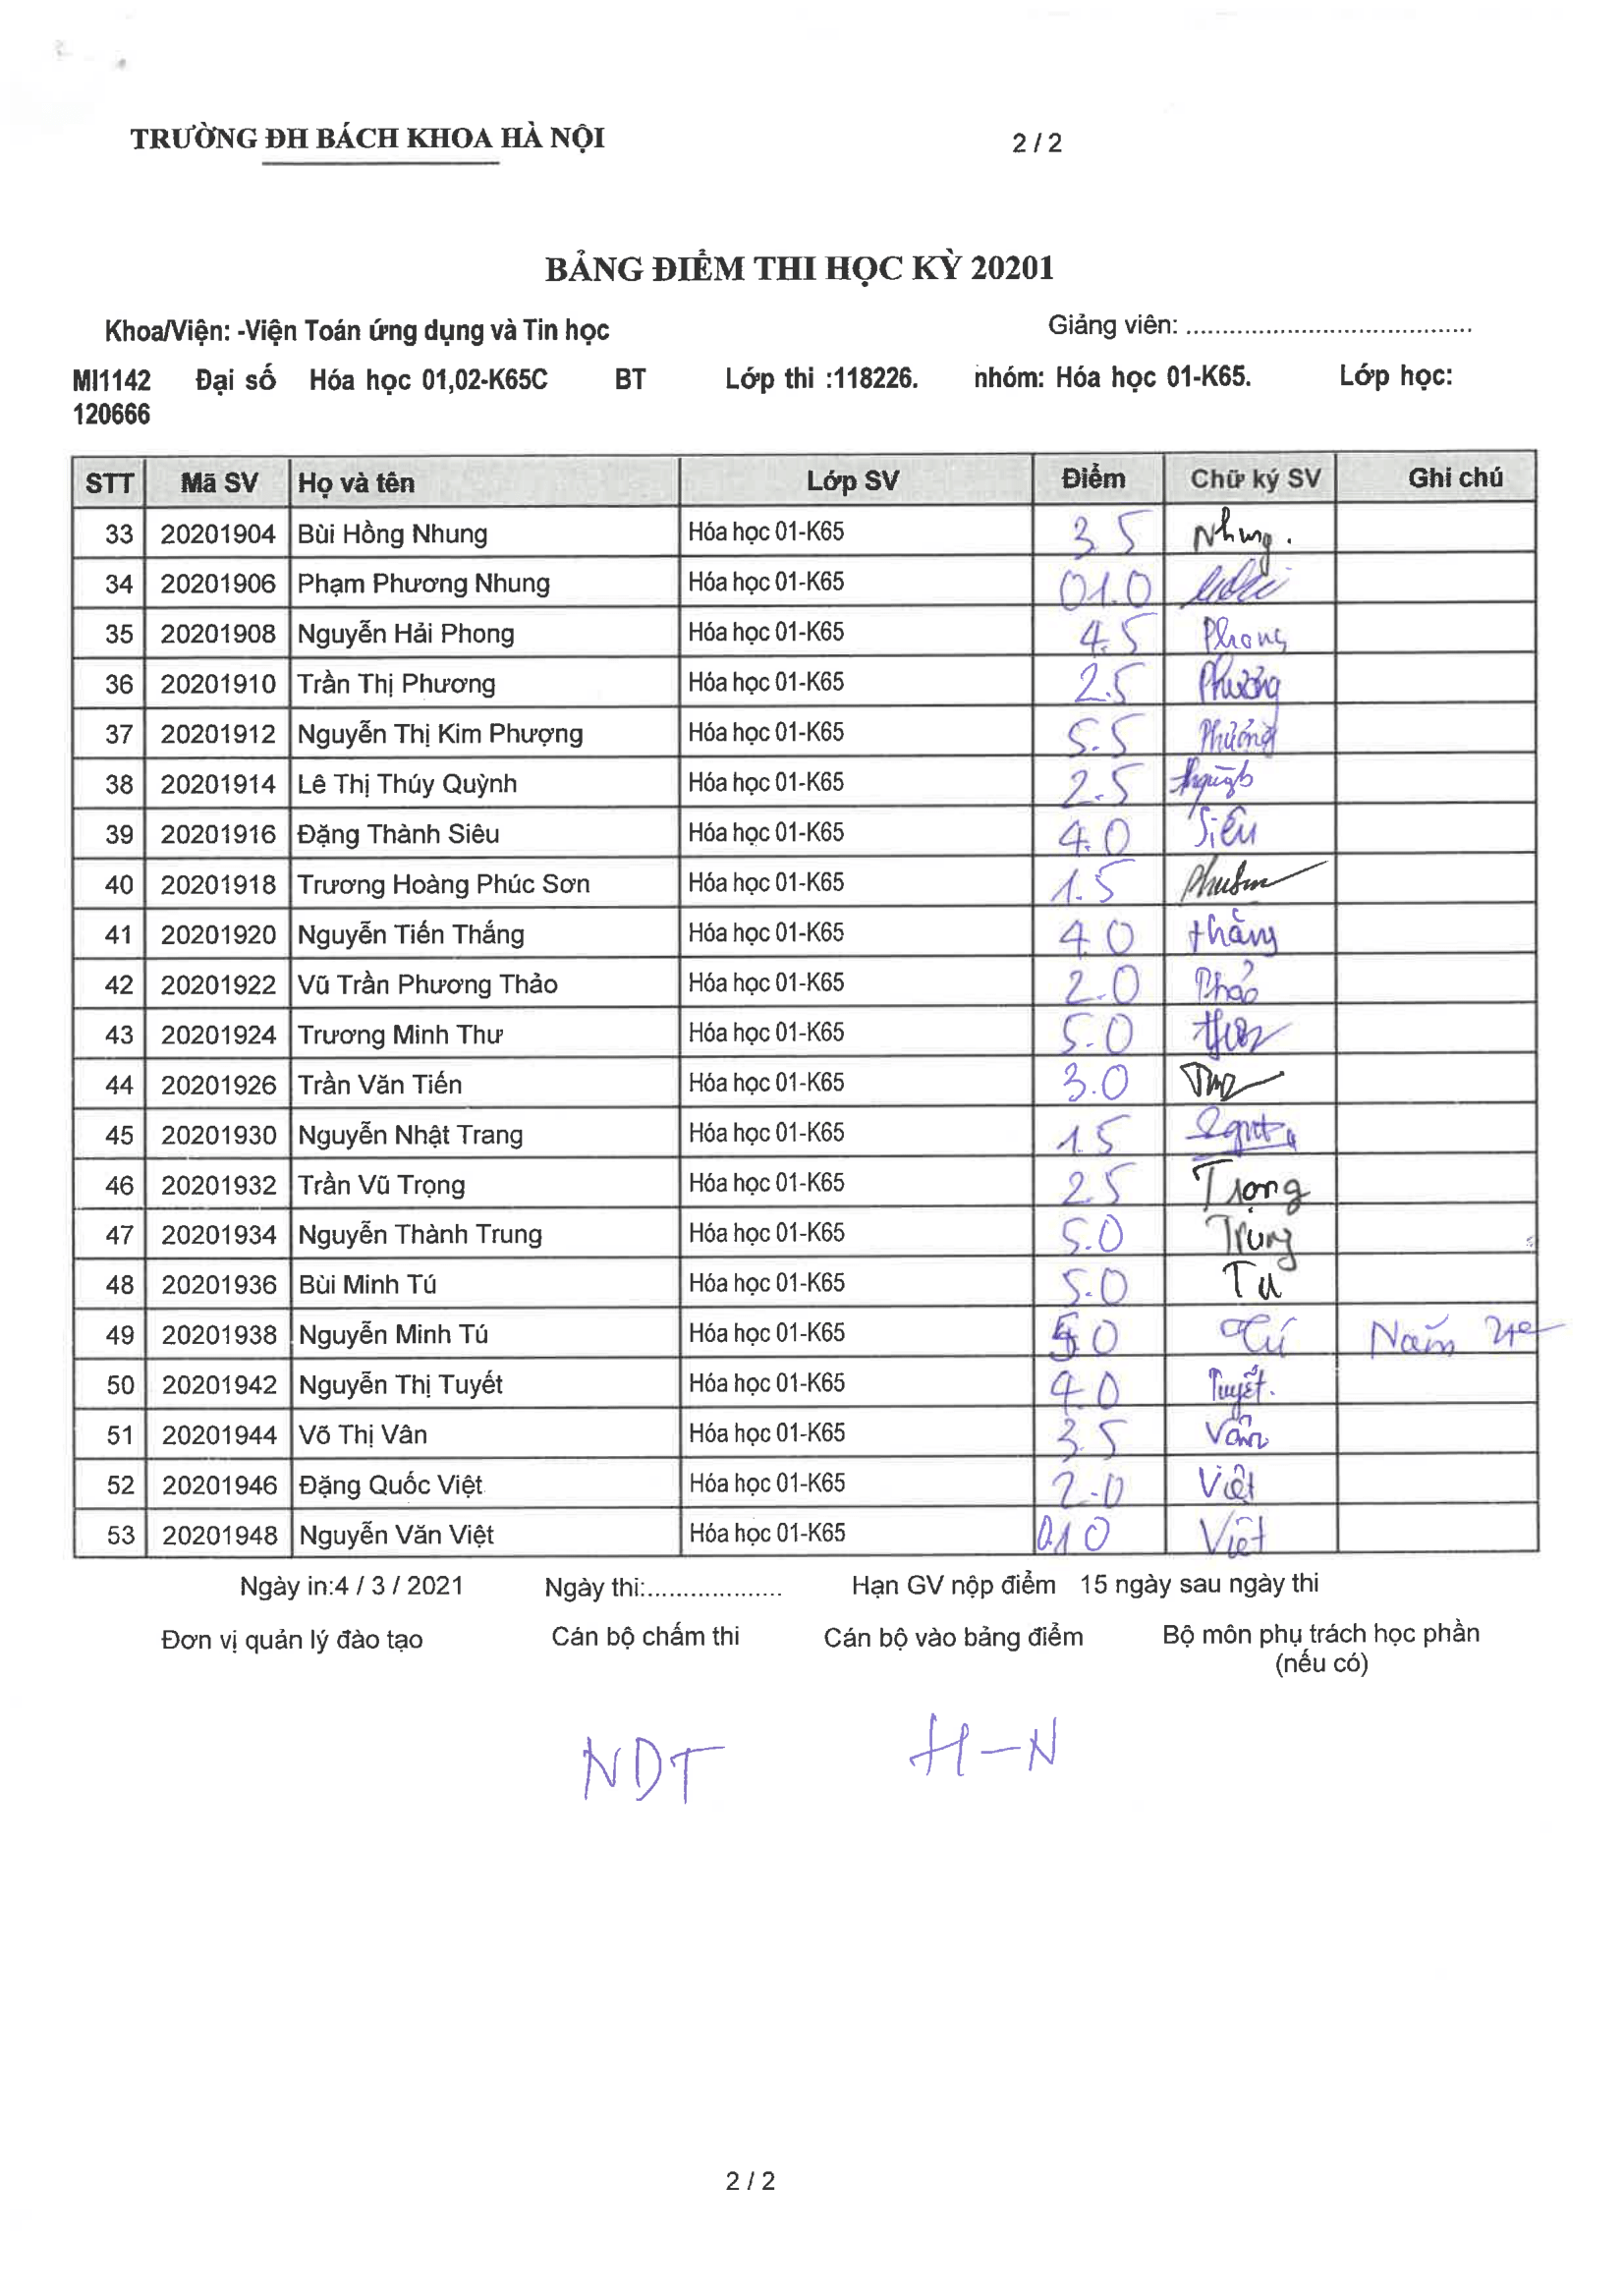 TRƯỜNG ĐH BÁCH KHOA HÀ NỘI 2 / 2
BẢNG ĐIỂM THI HỌC KỲ 20201
Khoa/Viện: -Viện Toán ứng dụng và Tin học Giảng viên: ........................................
MI1142 Đại số Hóa học 01,02-K65C BT Lớp thi :118226. nhóm: Hóa học 01-K65. Lớp học:
120666
STT Mã SV Họ và tên Lớp SV Điểm Chữ ký SV Ghi chú
33 20201904 Bùi Hồng Nhung Hóa học 01-K65 3.5 Nhung.
34 20201906 Phạm Phương Nhung Hóa học 01-K65 01.0
35 20201908 Nguyễn Hải Phong Hóa học 01-K65 4.5 Phong
36 20201910 Trần Thị Phương Hóa học 01-K65 2.5 Phương
37 20201912 Nguyễn Thị Kim Phượng Hóa học 01-K65 5.5 Phượng
38 20201914 Lê Thị Thúy Quỳnh Hóa học 01-K65 2.5
39 20201916 Đặng Thành Siêu Hóa học 01-K65 4.0 Siêu
40 20201918 Trương Hoàng Phúc Sơn Hóa học 01-K65 1.5
41 20201920 Nguyễn Tiến Thắng Hóa học 01-K65 4.0 thắng
42 20201922 Vũ Trần Phương Thảo Hóa học 01-K65 2.0 Thảo
43 20201924 Trương Minh Thư Hóa học 01-K65 5.0
44 20201926 Trần Văn Tiến Hóa học 01-K65 3.0
45 20201930 Nguyễn Nhật Trang Hóa học 01-K65 1.5
46 20201932 Trần Vũ Trọng Hóa học 01-K65 2.5 Trọng
47 20201934 Nguyễn Thành Trung Hóa học 01-K65 5.0 Trung
48 20201936 Bùi Minh Tú Hóa học 01-K65 5.0 Tú
49 20201938 Nguyễn Minh Tú Hóa học 01-K65 5.0 Tú Năm
50 20201942 Nguyễn Thị Tuyết Hóa học 01-K65 4.0 Tuyết.
51 20201944 Võ Thị Vân Hóa học 01-K65 3.5 Vân
52 20201946 Đặng Quốc Việt Hóa học 01-K65 2.0 Việt
53 20201948 Nguyễn Văn Việt Hóa học 01-K65 01.0 Việt
Ngày in:4 / 3 / 2021 Ngày thi:................... Hạn GV nộp điểm 15 ngày sau ngày thi
Đơn vị quản lý đào tạo Cán bộ chấm thi Cán bộ vào bảng điểm Bộ môn phụ trách học phần
(nếu có)
NDT H-N
2 / 2